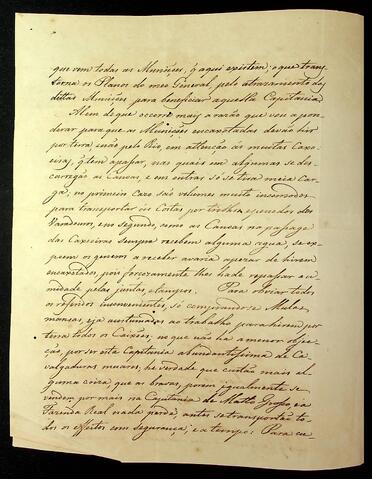 que vem todas as Munições, q̃ aqui existem: o que trans-
torna os Planos do meo General, pelo atrazamento das
dittas Munições para beneficiar aquella Capitania
Alem de que occorre mais a razão que vou a pon-
derar para que as Munições encaxotadas devão hir
por terra, e não pelo Rio, em attenção ás muitas Caxo-
eiras, q̃ tem a passar, nas quais em algumas se des-
carregão as Canoas, e em outras só se tira meia Car-
ga, no primeiro Cazo são volumes muito incommodos
para transportar ás Costas por trilhos, e penedos dos
Varadouros, em segundo, como as Canoas na passage
das Caxoeiras sempre recebem alguma agua, se ex-
poem os generos a receber avaria apezar de hirem
encaxotados, pois forçozamente lhes hade repassar a u-
midade pelas juntas e tampos. Para obviar todos
os referidos inconvenientes, só comprando-se Mulas
mansas, e ja custumadas ao trabalho para hirem por
terra todos os Caixões, no que não ha a menor objec-
ção, por ser esta Capitania abundantissima de Ca-
valgaduras muares, he verdade que custão mais al-
guma coiza, que as bravas, porem igualmente se
vendem por mais na Capitania de Matto Grosso, e a
Fazenda Real nada perde, antes se transportão to-
dos os effeitos com segurança, e a tempo: Para cu-